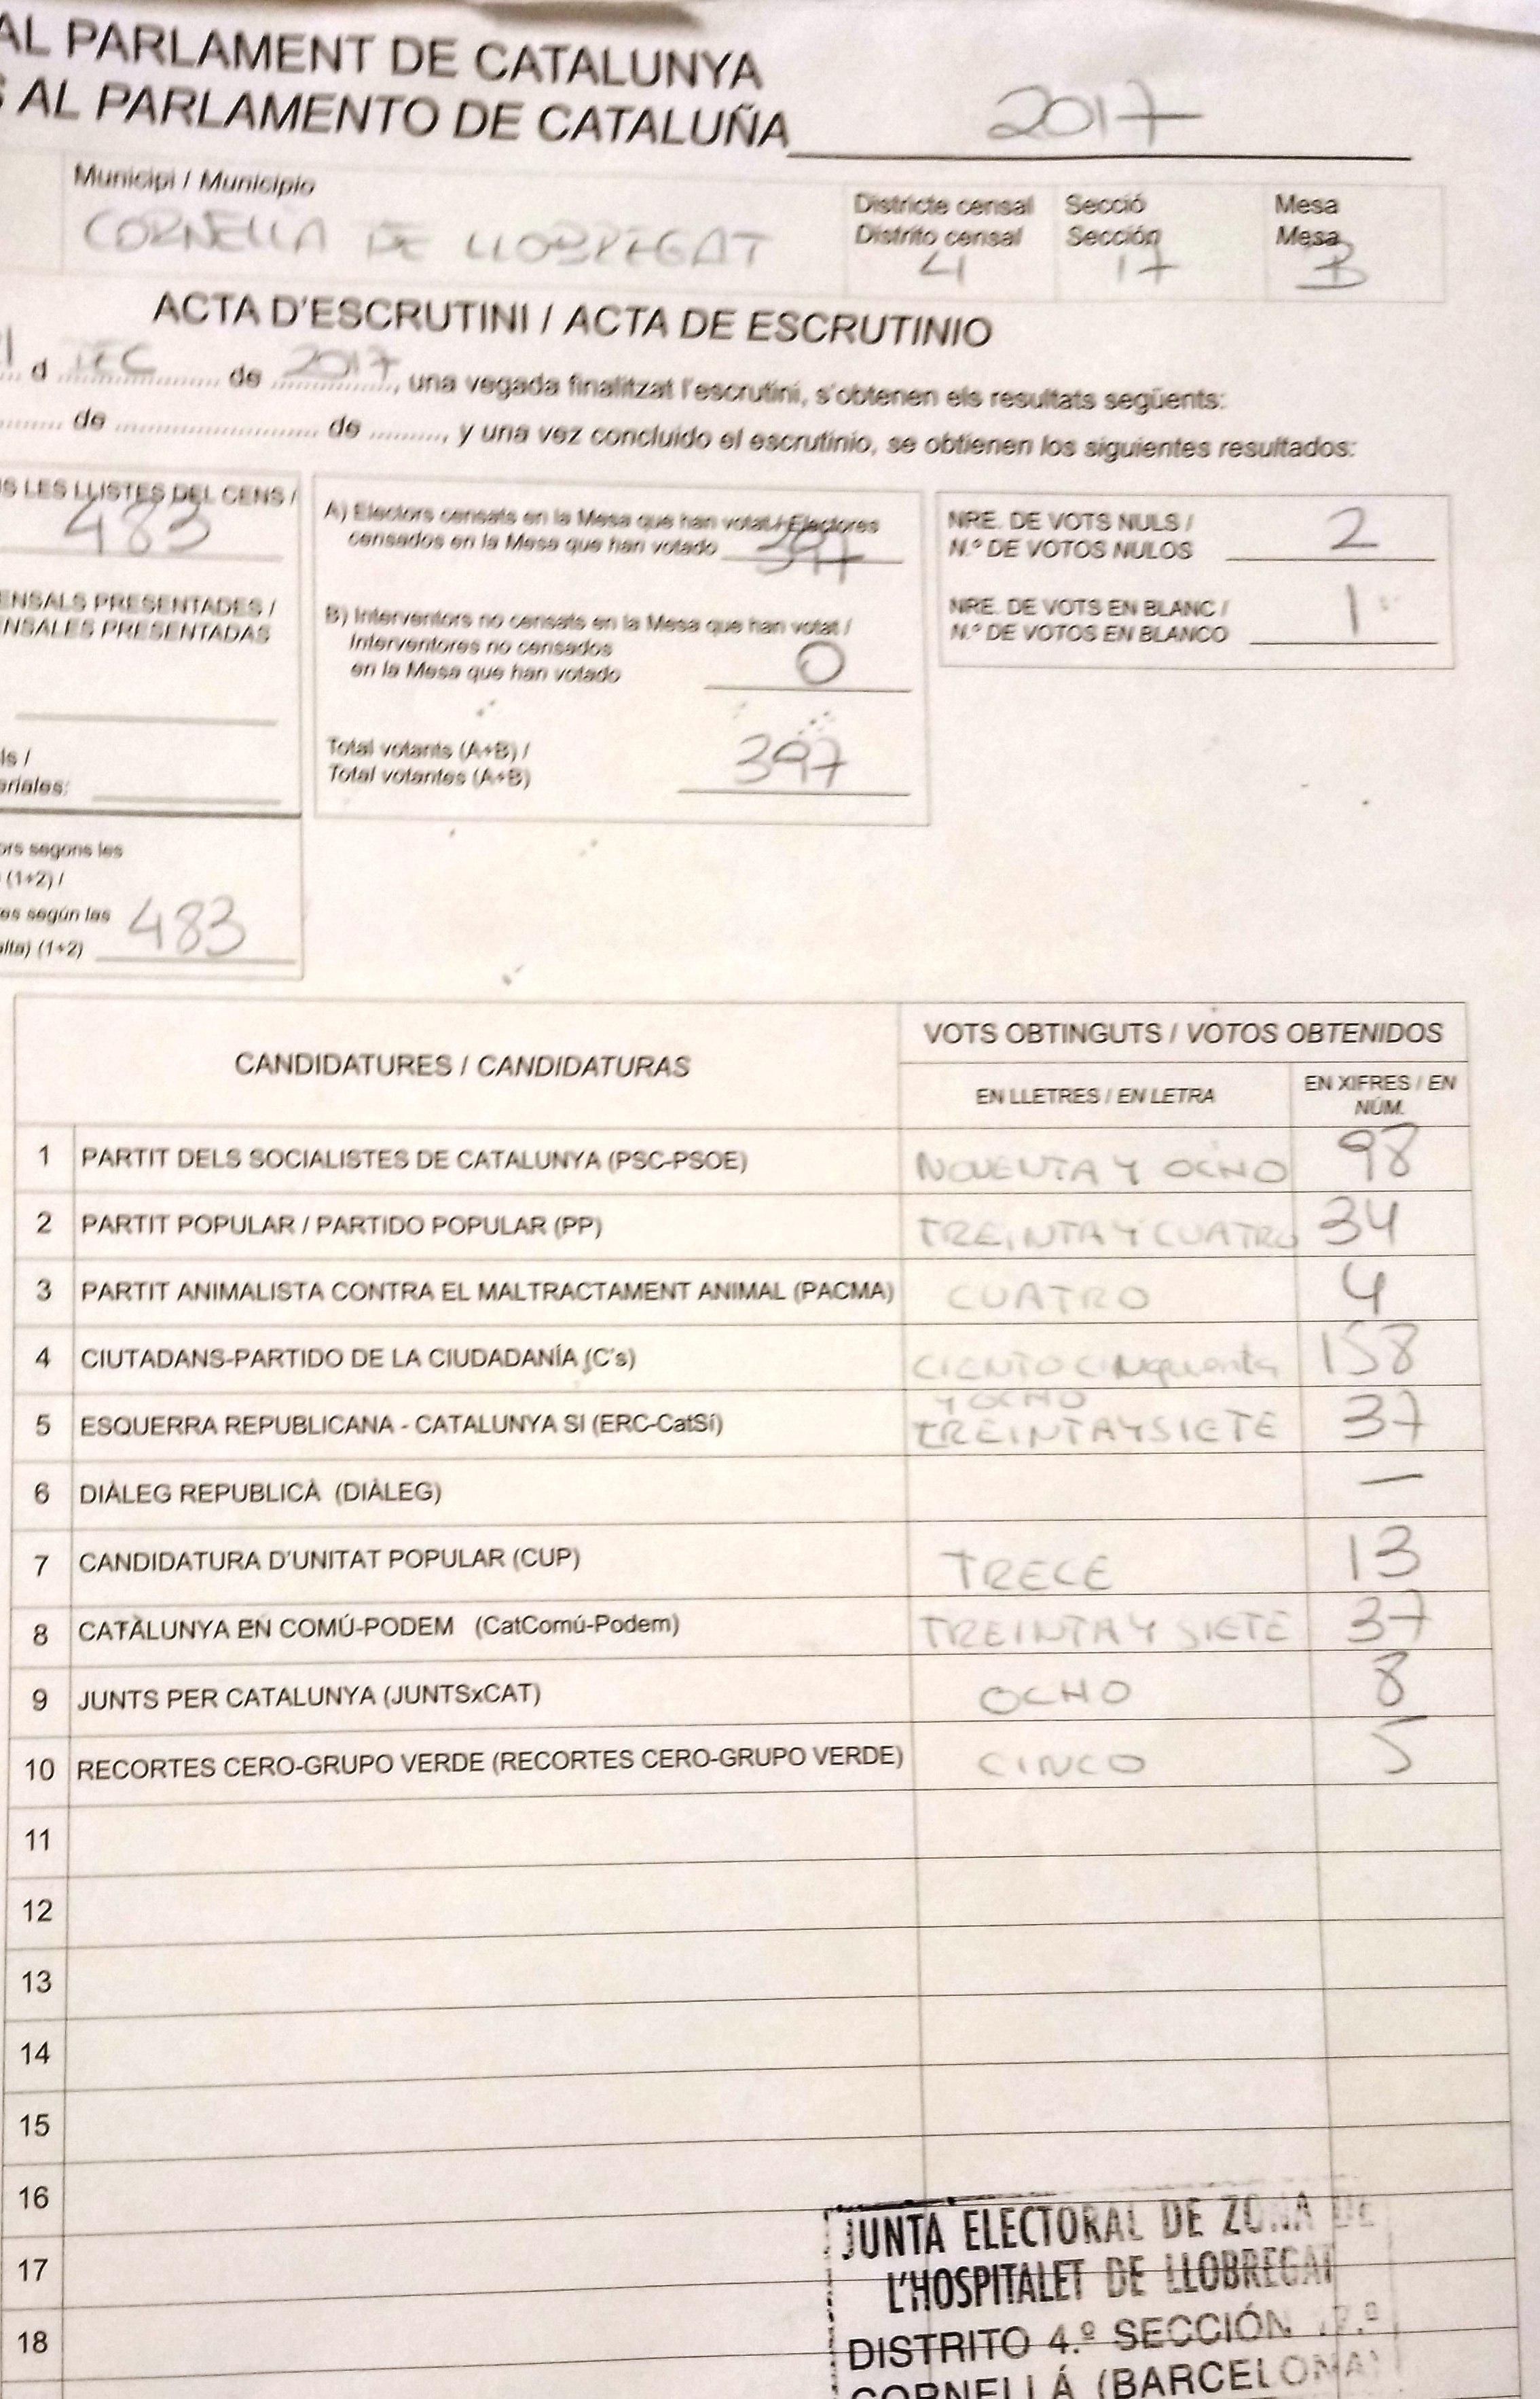 AL PARLAMENT DE CATALUNYA
S AL PARLAMENTO DE CATALUÑA 2017
Municipi / Municipio
CORNELLA DE LLOBREGAT
Districte censal
Distrito censal
4
Secció
Sección
17
Mesa
Mesa
B
ACTA D'ESCRUTINI / ACTA DE ESCRUTINIO
d DEC de 2017, una vegada finalitzat l'escrutini, s'obtenen els resultats següents:
de de, y una vez concluido el escrutinio, se obtienen los siguientes resultados:
S LES LLISTES DEL CENS /
483
ENSALS PRESENTADES /
NSALES PRESENTADAS
ls /
eriales:
ors segons les
(1+2) /
es según las
alta) (1+2) 483
A) Electors censats en la Mesa que han votat / Electores
censados en la Mesa que han votado 397
B) Interventors no censats en la Mesa que han votat /
Interventores no censados
en la Mesa que han votado 0
Total votants (A+B) /
Total votantes (A+B) 397
NRE. DE VOTS NULS /
N.º DE VOTOS NULOS 2
NRE. DE VOTS EN BLANC /
N.º DE VOTOS EN BLANCO 1
CANDIDATURES / CANDIDATURAS
VOTS OBTINGUTS / VOTOS OBTENIDOS
EN LLETRES / EN LETRA
EN XIFRES / EN
NÚM.
1 PARTIT DELS SOCIALISTES DE CATALUNYA (PSC-PSOE) NOVENTA Y OCHO 98
2 PARTIT POPULAR / PARTIDO POPULAR (PP) TREINTA Y CUATRO 34
3 PARTIT ANIMALISTA CONTRA EL MALTRACTAMENT ANIMAL (PACMA) CUATRO 4
4 CIUTADANS-PARTIDO DE LA CIUDADANÍA (C's) CIENTO CINquenta 158
Y OCHO
5 ESQUERRA REPUBLICANA - CATALUNYA SI (ERC-CatSí) TREINTA Y SIETE 37
6 DIÀLEG REPUBLICÀ (DIÀLEG) —
7 CANDIDATURA D'UNITAT POPULAR (CUP) TRECE 13
8 CATALUNYA EN COMÚ-PODEM (CatComú-Podem) TREINTA Y SIETE 37
9 JUNTS PER CATALUNYA (JUNTSxCAT) OCHO 8
10 RECORTES CERO-GRUPO VERDE (RECORTES CERO-GRUPO VERDE) CINCO 5
11
12
13
14
15
16
17
18
JUNTA ELECTORAL DE ZONA DE
L'HOSPITALET DE LLOBREGAT
DISTRITO 4.º SECCIÓN 17.ª
CORNELLÁ (BARCELONA)